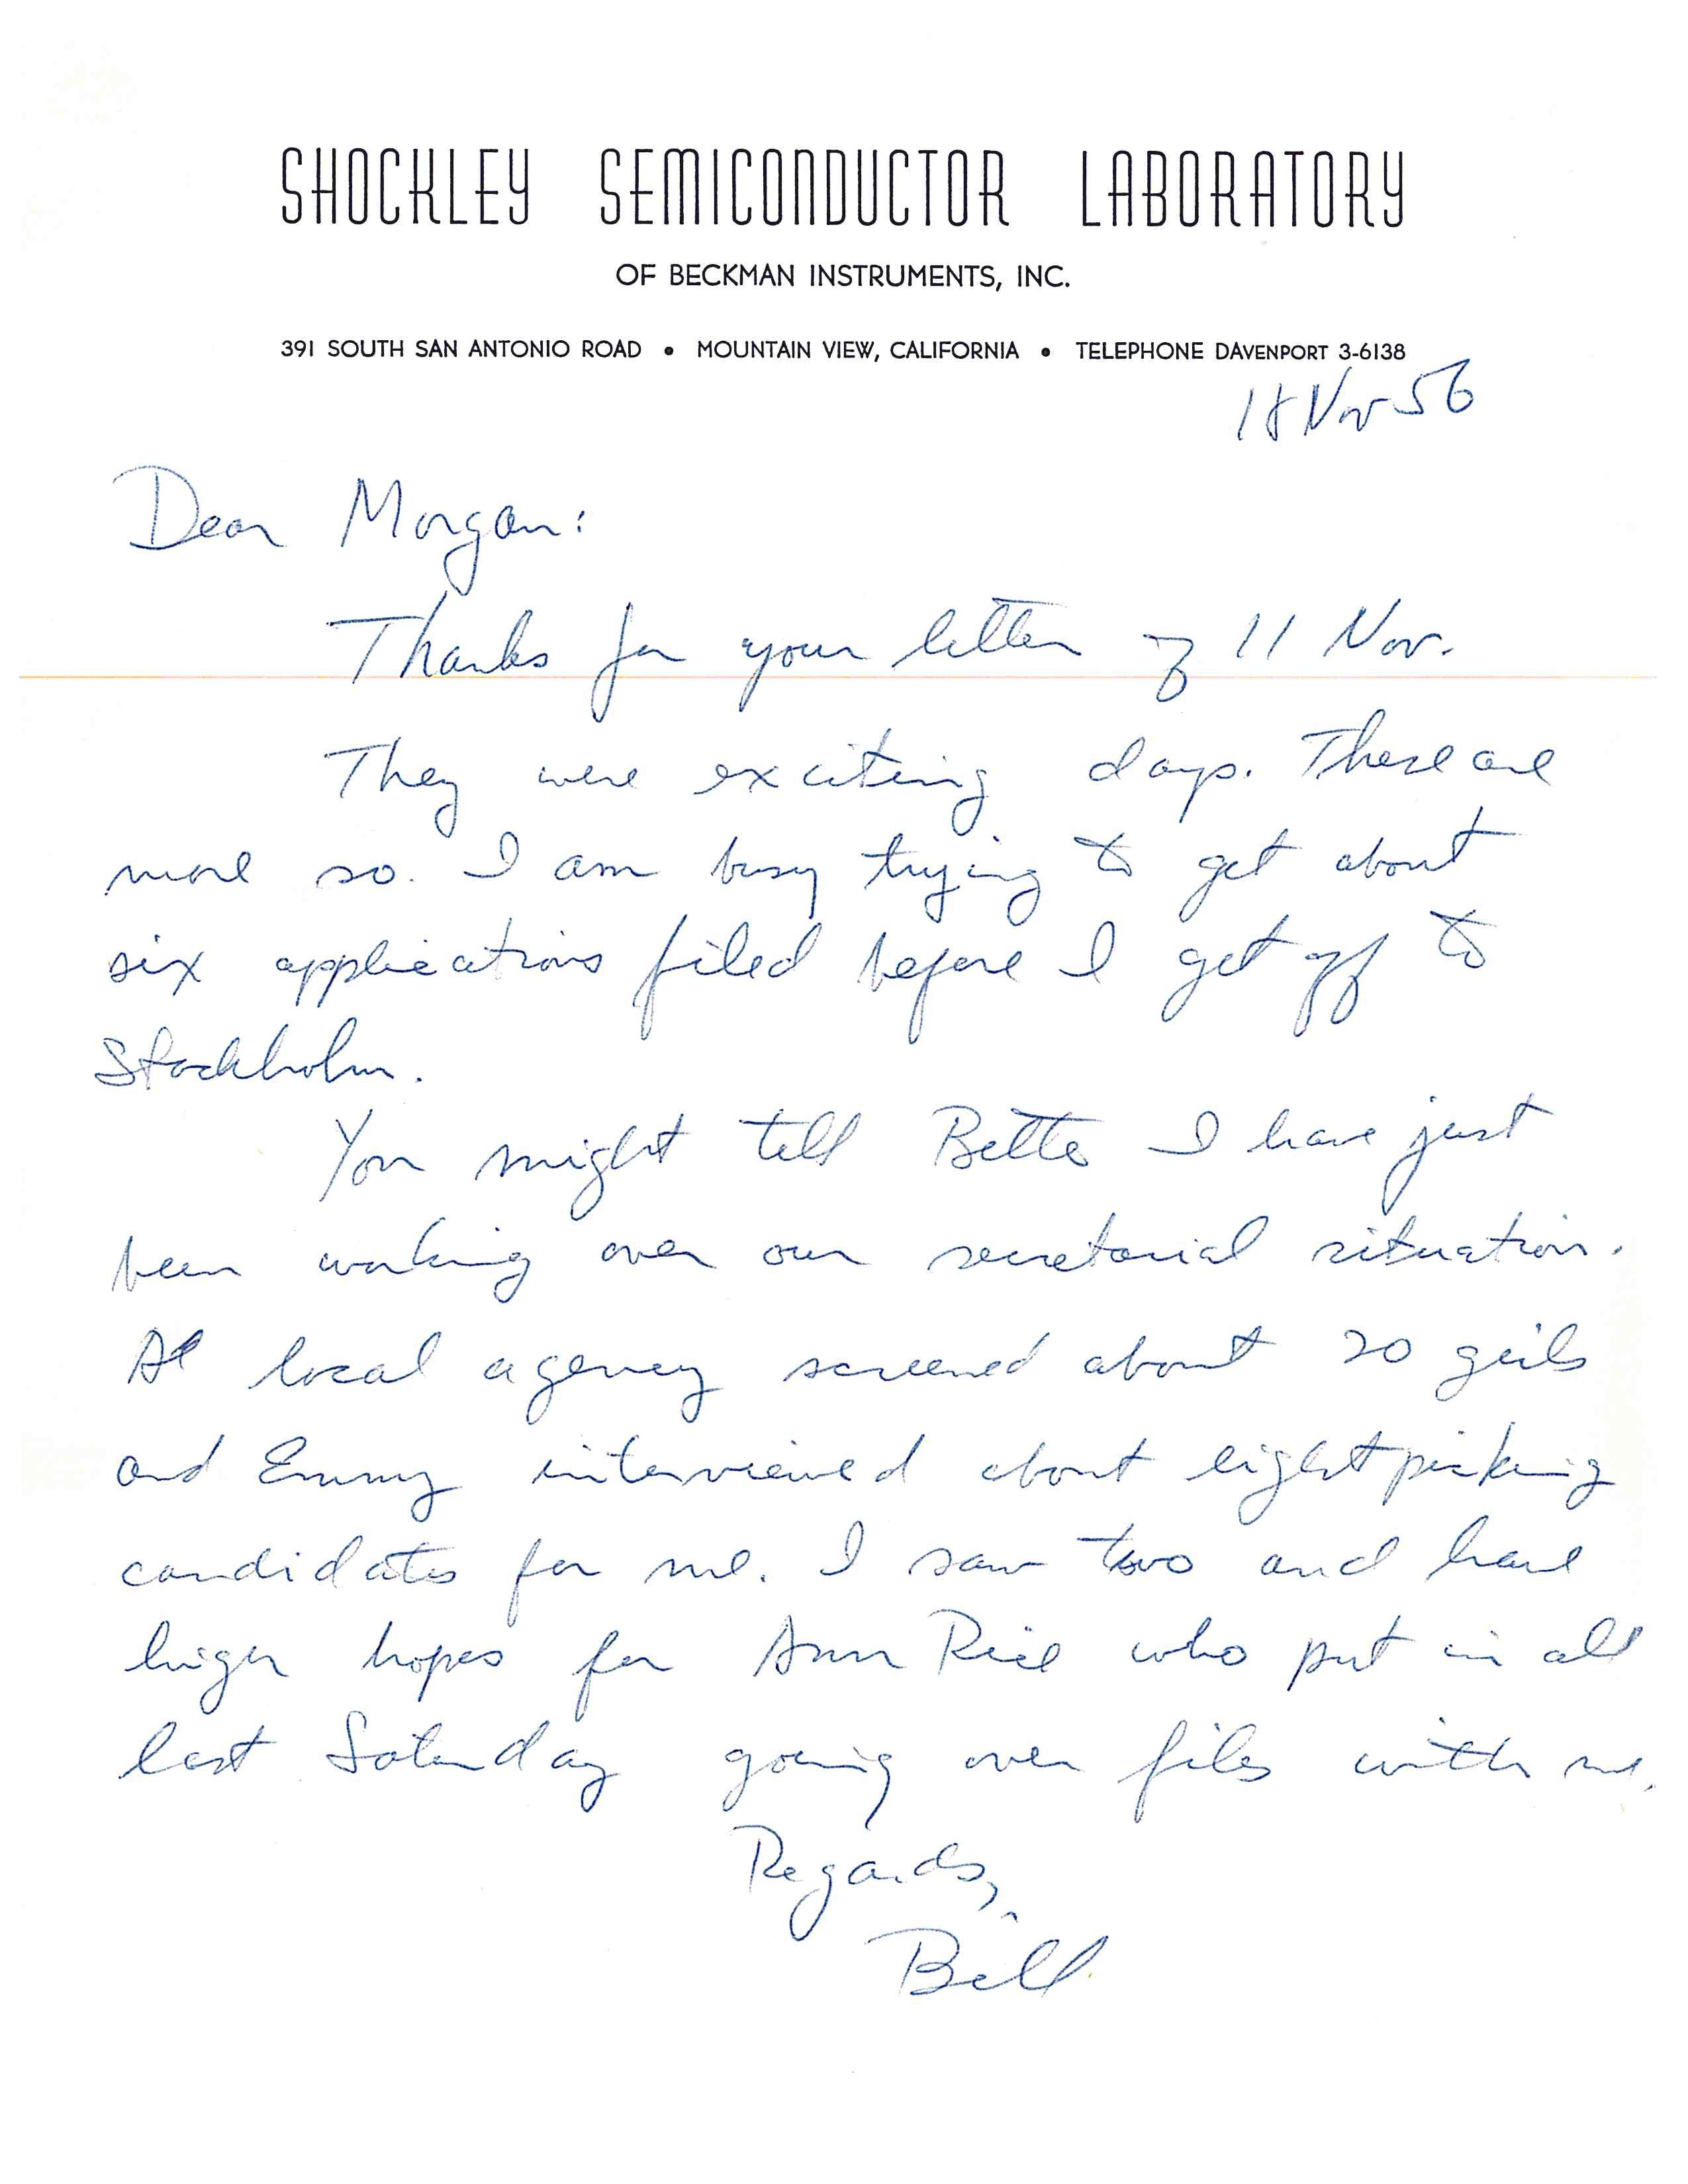 SHOCKLEY SEMICONDUCTOR LABORATORY
OF BECKMAN INSTRUMENTS, INC.
391 SOUTH SAN ANTONIO ROAD • MOUNTAIN VIEW, CALIFORNIA • TELEPHONE DAVENPORT 3-6138
18 Nov 56
Dear Morgan:
Thanks for your letter of 11 Nov.
They were exciting days. These are
more so. I am busy trying to get about
six applications filed before I get off to
Stockholm.
You might tell Bette I have just
been working over our secretarial situation.
A local agency screened about 20 girls
and Emmy interviewed about eight picking
candidates for me. I saw two and have
higer hopes for Ann Rice who put in all
last Saturday going over files with me.
Regards,
Bill